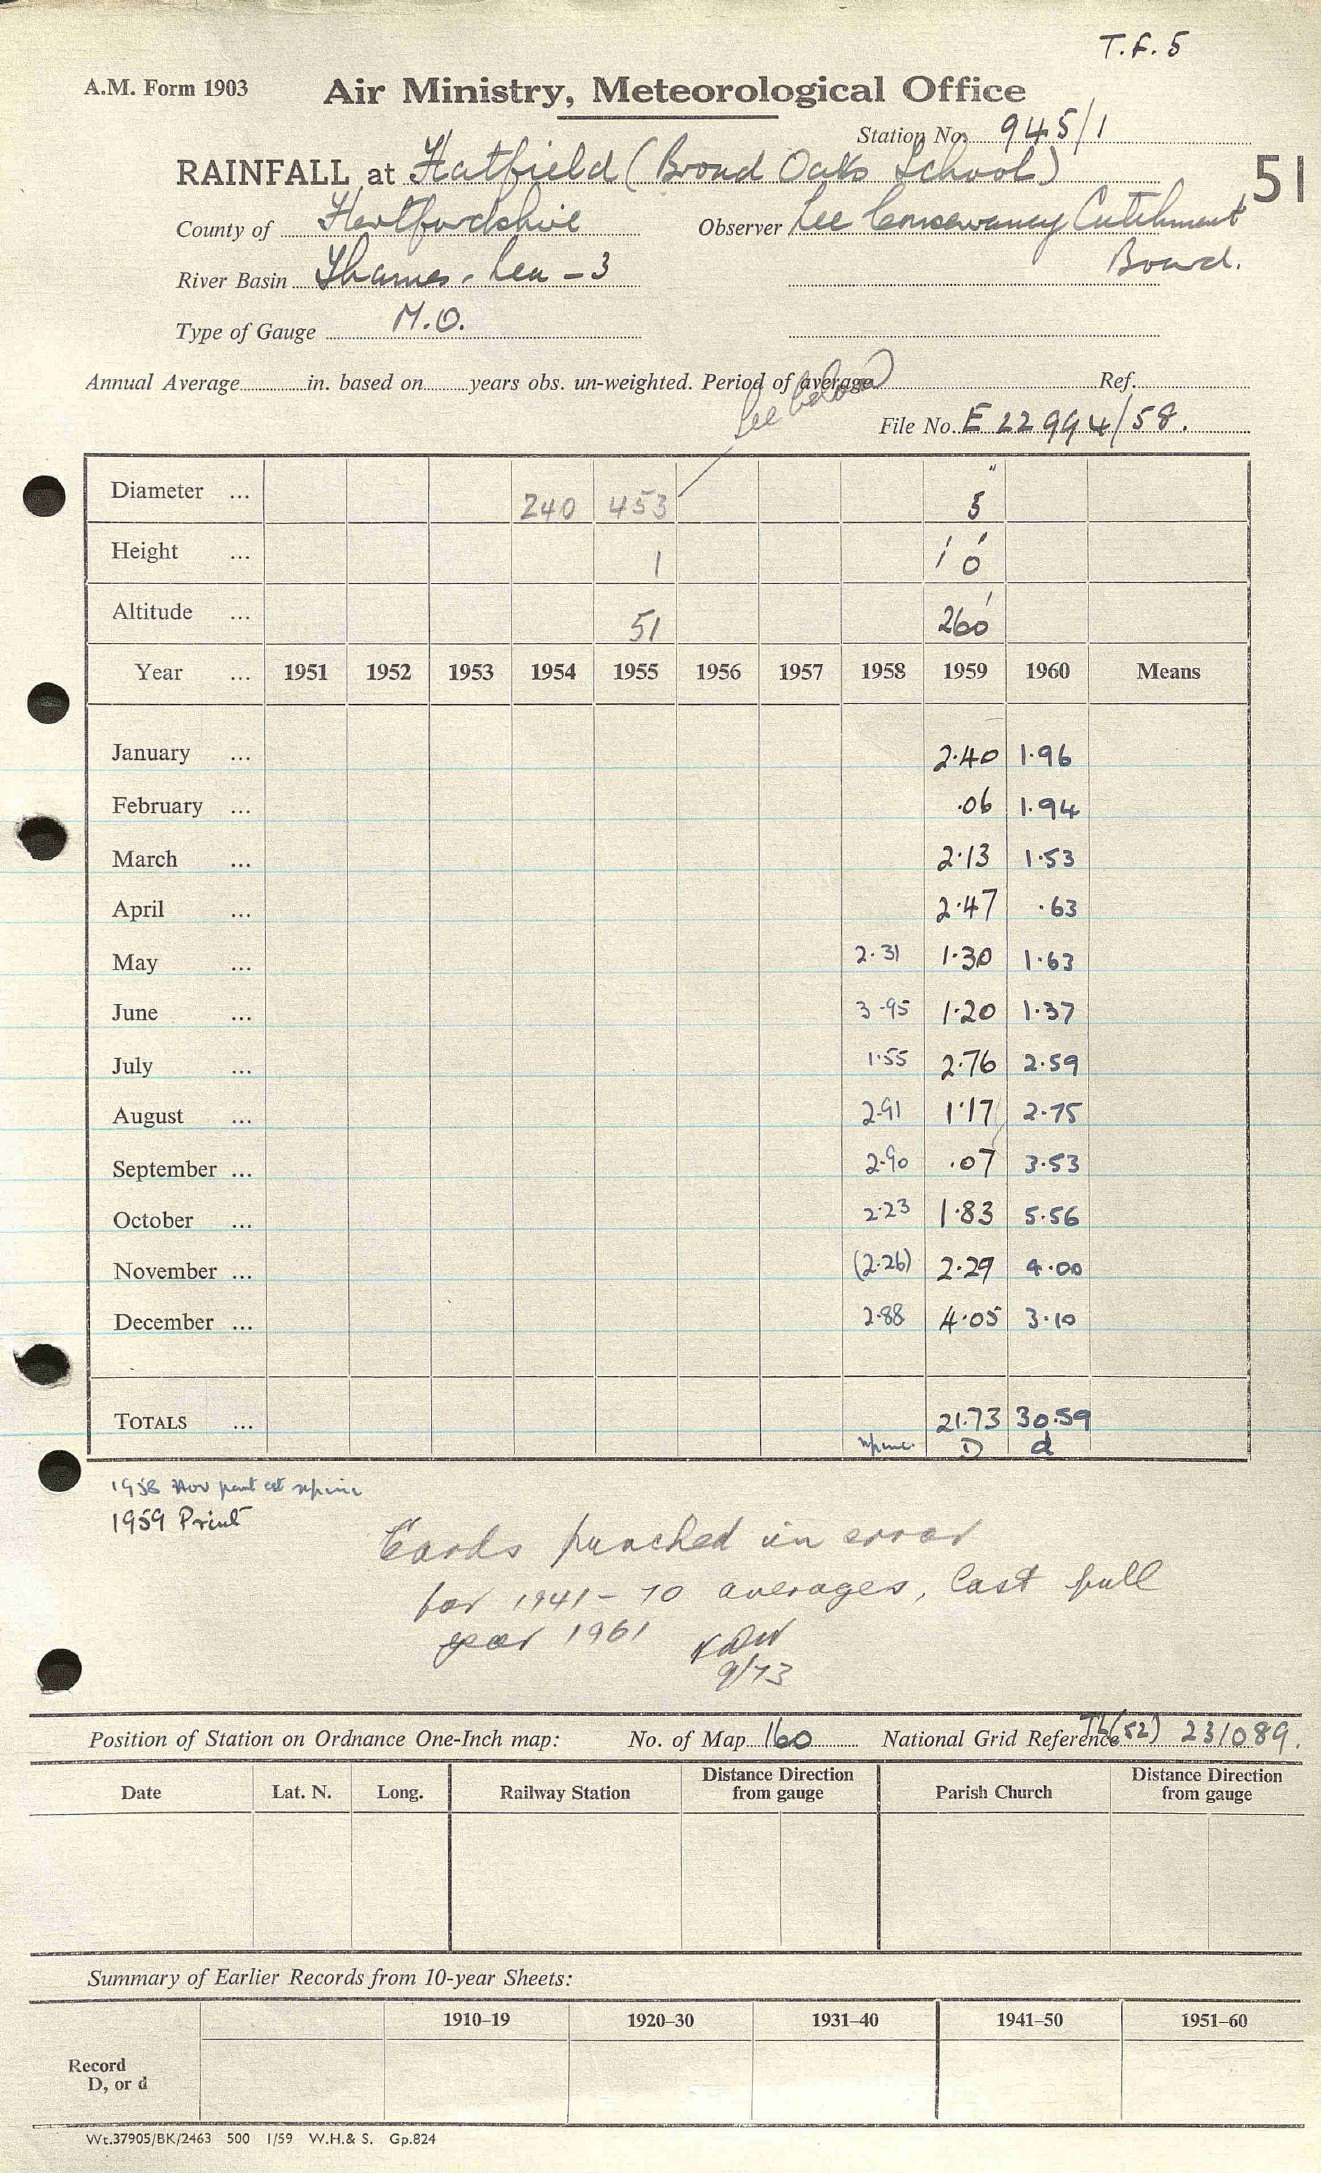 T.F. 5
A.M. Form 1903 Air Ministry, Meteorological Office
Station No. 945/1
RAINFALL at Hatfield (Broad Oaks School) 51
County of Hertfordshire Observer Lee Conservancy Catchment
Board.
River Basin Thames - Lea - 3
Type of Gauge M.O.
Annual Average in. based on years obs. un-weighted. Period of average Ref.
See below
File No. E 22994/58.
Diameter ... 240 453 5"
Height ... 1 1' 0
Altitude ... 51 260'
Year ... 1951 1952 1953 1954 1955 1956 1957 1958 1959 1960 Means
January ... 2.40 1.96
February ... .06 1.94
March ... 2.13 1.53
April ... 2.47 .63
May ... 2.31 1.30 1.63
June ... 3.95 1.20 1.37
July ... 1.55 2.76 2.59
August ... 2.91 1.17 2.75
September ... 2.90 .07 3.53
October ... 2.23 1.83 5.56
November ... (2.26) 2.29 4.00
December ... 2.88 4.05 3.10
TOTALS ... 21.73 30.59
D d
1958 Nov part est
1959 Print
Cards punched in error
for 1941-70 averages, last full
year 1961
9/73
Position of Station on Ordnance One-Inch map: No. of Map 160 National Grid Reference TL(52) 231089.
Date Lat. N. Long. Railway Station Distance Direction from gauge Parish Church Distance Direction from gauge
Summary of Earlier Records from 10-year Sheets:
1910–19 1920–30 1931–40 1941–50 1951–60
Record
D, or d
Wt.37905/BK/2463 500 1/59 W.H.& S. Gp.824